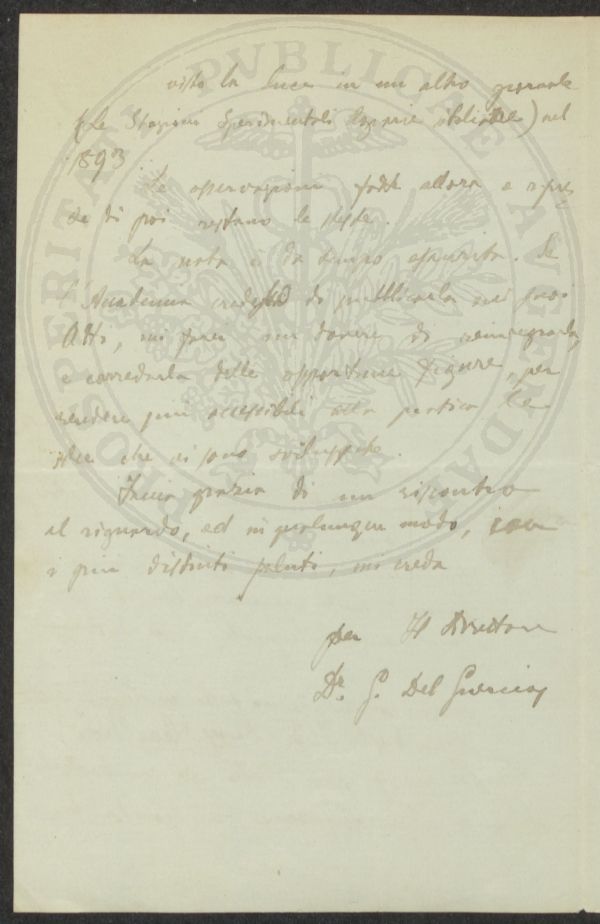 visto la luce in un altro giornale
(Le Stazioni Sperimentali Agrarie italiane) nel
1893
Le osservazioni fatte allora e
di poi restano le stesse.
La nota è da tempo esaurita. Se
l'Accademia credesse di pubblicarla nei suoi
Atti, mi farei un dovere di reintegrarla,
e corredarla delle opportune figure, per
rendere più accessibili alla pratica le
idee che vi sono sviluppate.
Faccia grazia di un riscontro
al riguardo, ed in qualunque modo, con
i più distinti saluti, mi creda
per Il Direttore
Dr. G. Del Guercio
PROSPERITATI PVBLICAE AVGENDAE